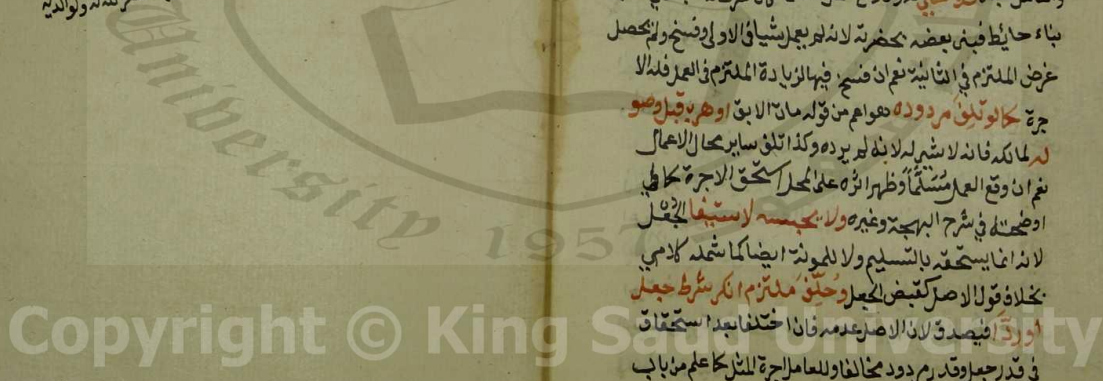 بناء حايط فبنى بعضه بحضرته لانه لم يعمل شيا في الاولى وفسخ ولم يحصل
غرض الملتزم في الثانية نعم ان فسخ فيها لزيادة الملتزم في العمل فله الا
جرة كما لو تلف مردوده هو اعم من قوله مات الابق او هرب قبل وصو
له لمالكه فانه لا شي له لانه لم يرده وكذا تلف ساير محال الاعمال
نعم ان وقع العمل مسلما وظهر اثره على المحل استحق الاجرة كما
اوضحته في شرح البهجة وغيره ولا يحبسه لاستيفا الجعل
لانه انما يستحقه بالتسليم ولا للمونة ايضا كما شمله كلامي
بخلاف قول الاصل كقبض الجعل وحلف ملتزم انكر شرط جعل
او ردا فيصدق لان الاصل عدمه فان اختلفا بعد استحقاق
في قدر جعل وقدر مردود تحالفا وللعامل اجرة المثل كما علم من باب
ولوالديه
University
1957
Copyright © King Saud University